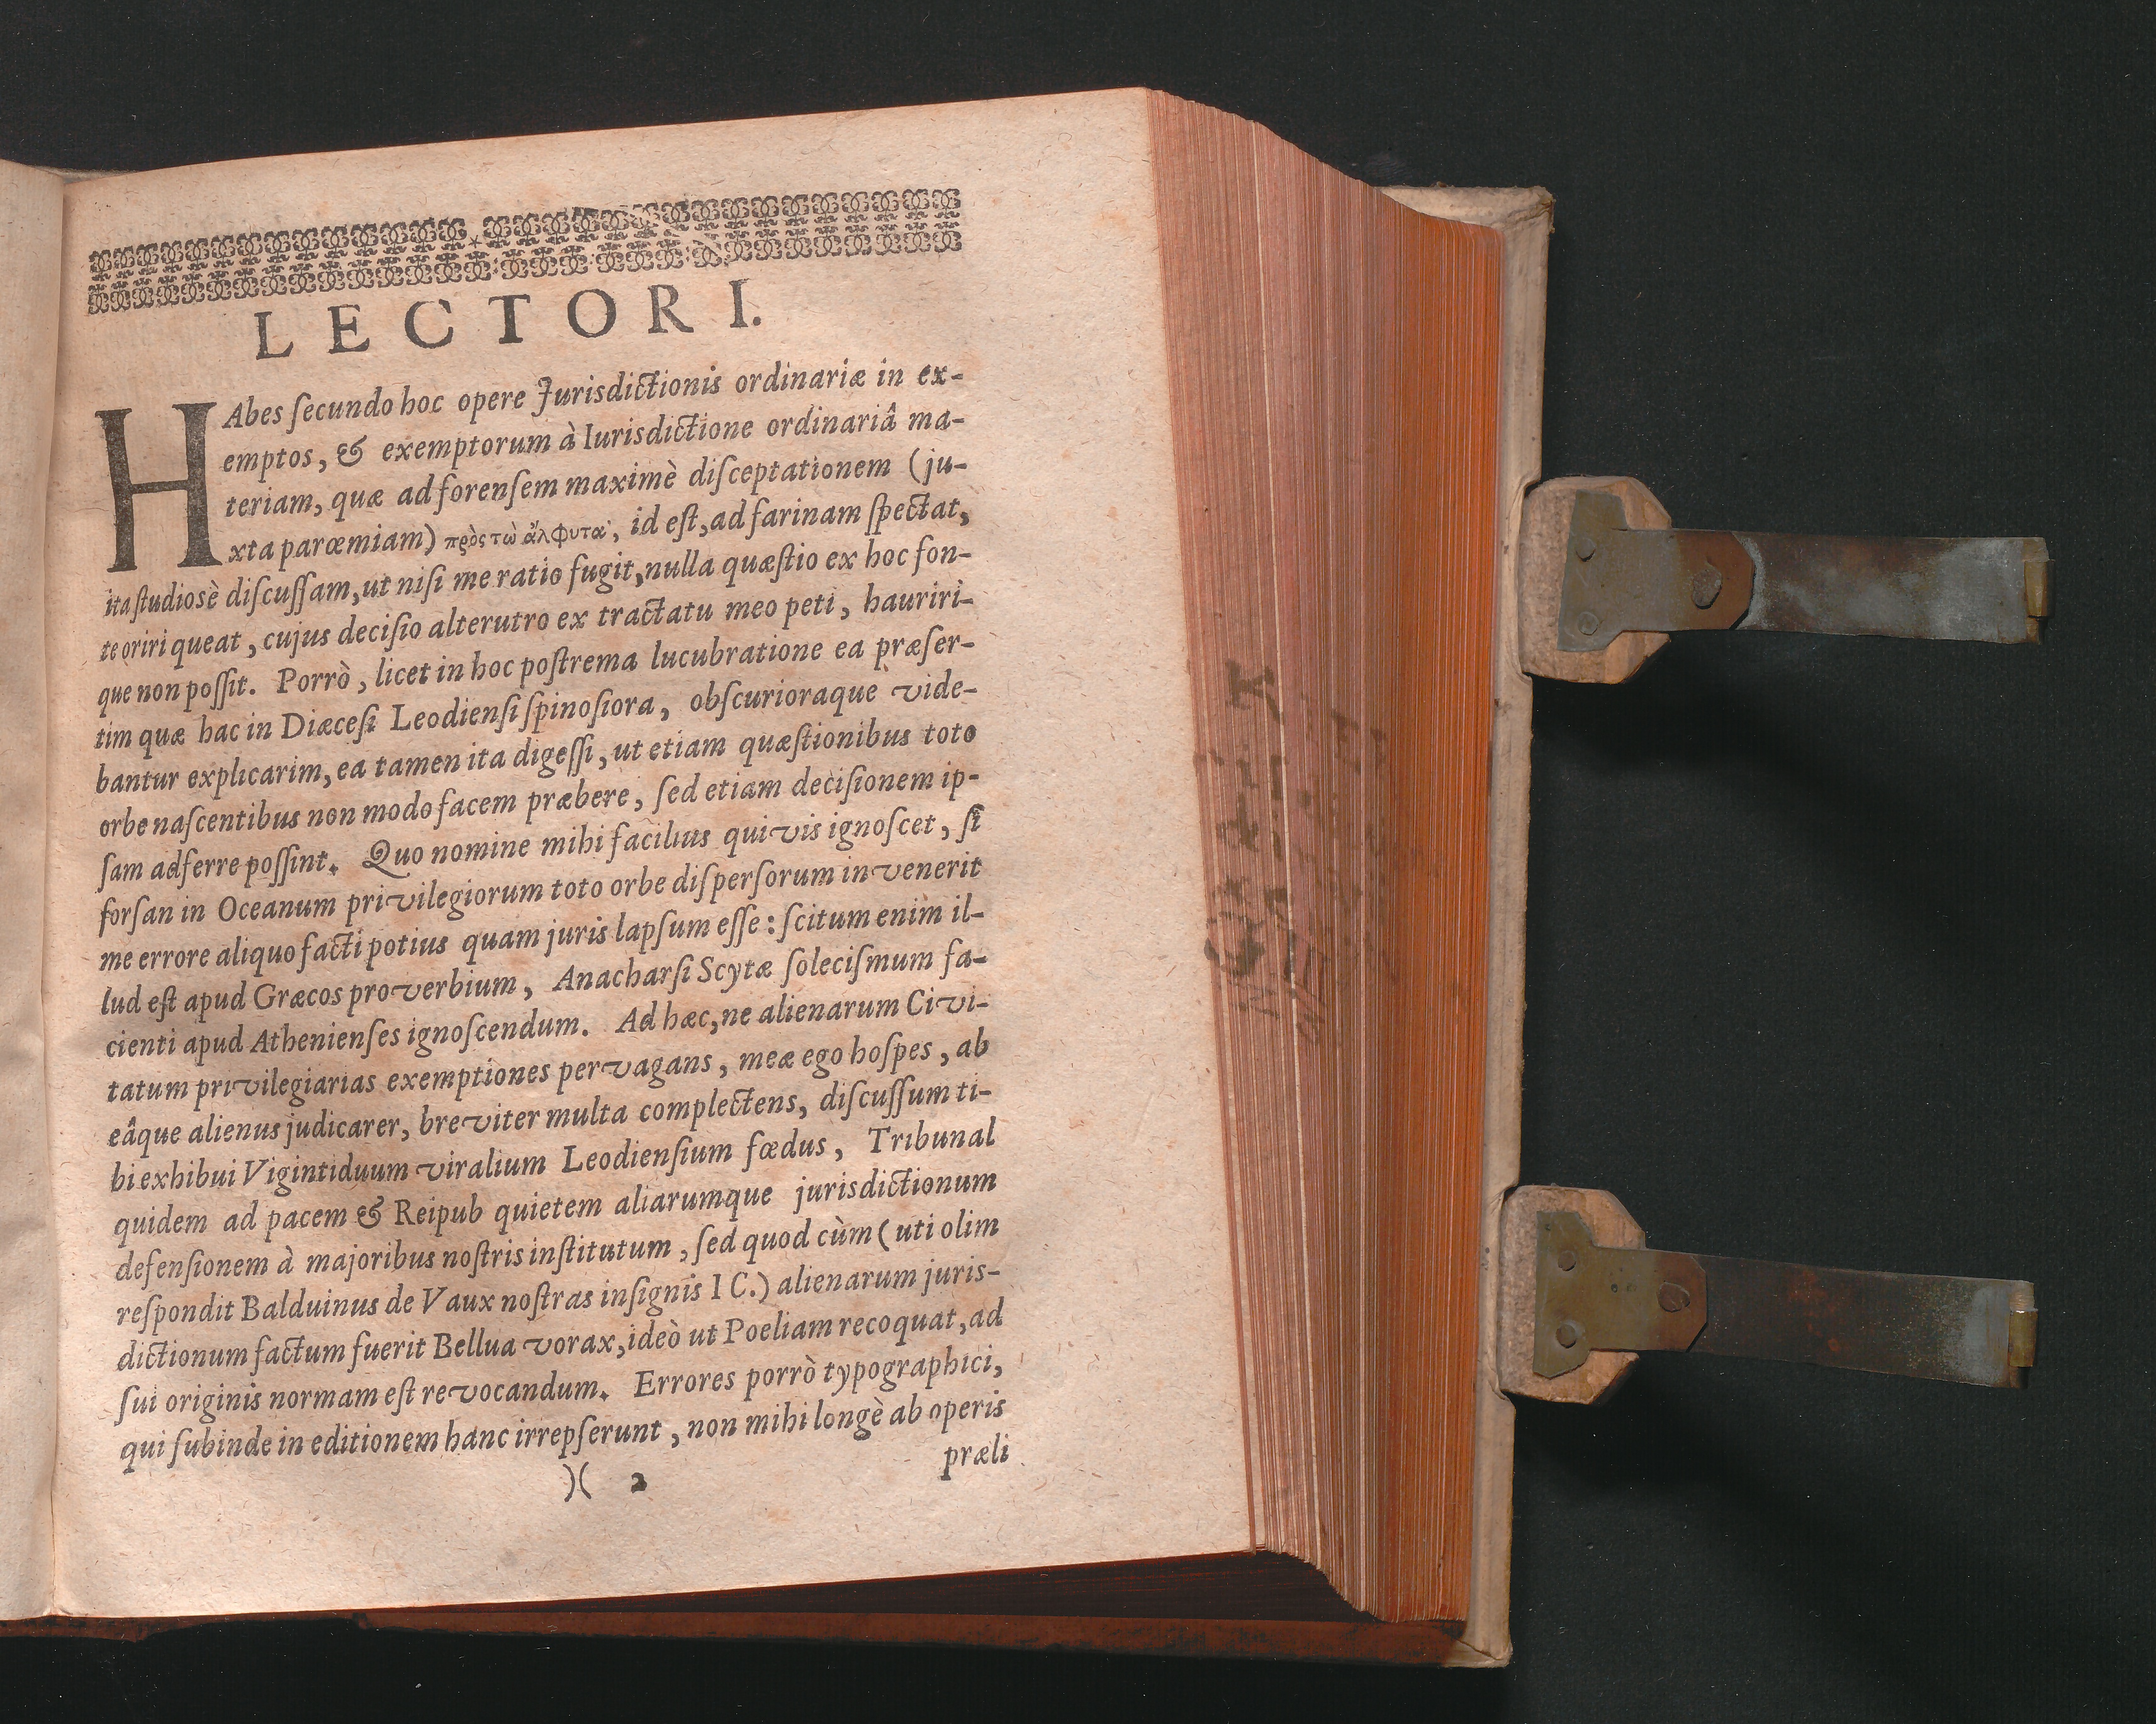 LECTORI.
HAbes ſecundo hoc opere Jurisdictionis ordinariæ in ex-
emptos, & exemptorum à Iurisdictione ordinariâ ma-
teriam, quæ ad forenſem maximè diſceptationem (ju-
xta parœmiam) πρὸς τὼ ἄλφυτα, id eſt, ad farinam ſpectat,
ita ſtudiosè diſcuſſam, ut niſi me ratio fugit, nulla quæſtio ex hoc fon-
te oriri queat, cujus deciſio alterutro ex tractatu meo peti, hauriri-
que non poſſit. Porrò, licet in hoc poſtrema lucubratione ea præſer-
tim quæ hac in Diæceſi Leodienſi ſpinoſiora, obſcurioraque vide-
bantur explicarim, ea tamen ita digeſſi, ut etiam quæſtionibus toto
orbe naſcentibus non modo facem præbere, ſed etiam deciſionem ip-
ſam adferre poſſint. Quo nomine mihi facilius quivis ignoſcet, ſi
forſan in Oceanum privilegiorum toto orbe diſperſorum invenerit
me errore aliquo facti potius quam juris lapſum eſſe: ſcitum enim il-
lud eſt apud Græcos proverbium, Anacharſi Scytæ ſoleciſmum fa-
cienti apud Athenienſes ignoſcendum. Ad hæc, ne alienarum Civi-
tatum privilegiarias exemptiones pervagans, meæ ego hoſpes, ab
eâque alienus judicarer, breviter multa complectens, diſcuſſum ti-
bi exhibui Vigintiduum viralium Leodienſium fœdus, Tribunal
quidem ad pacem & Reipub quietem aliarumque jurisdictionum
defenſionem à majoribus noſtris inſtitutum, ſed quod cùm (uti olim
reſpondit Balduinus de Vaux noſtras inſignis I C.) alienarum juris-
dictionum factum fuerit Bellua vorax, ideò ut Poeliam recoquat, ad
ſui originis normam eſt revocandum. Errores porrò typographici,
qui ſubinde in editionem hanc irrepſerunt, non mihi longè ab operis
præli
)( 2